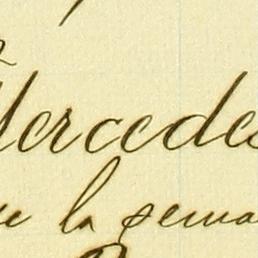 Mercedes
que la sema